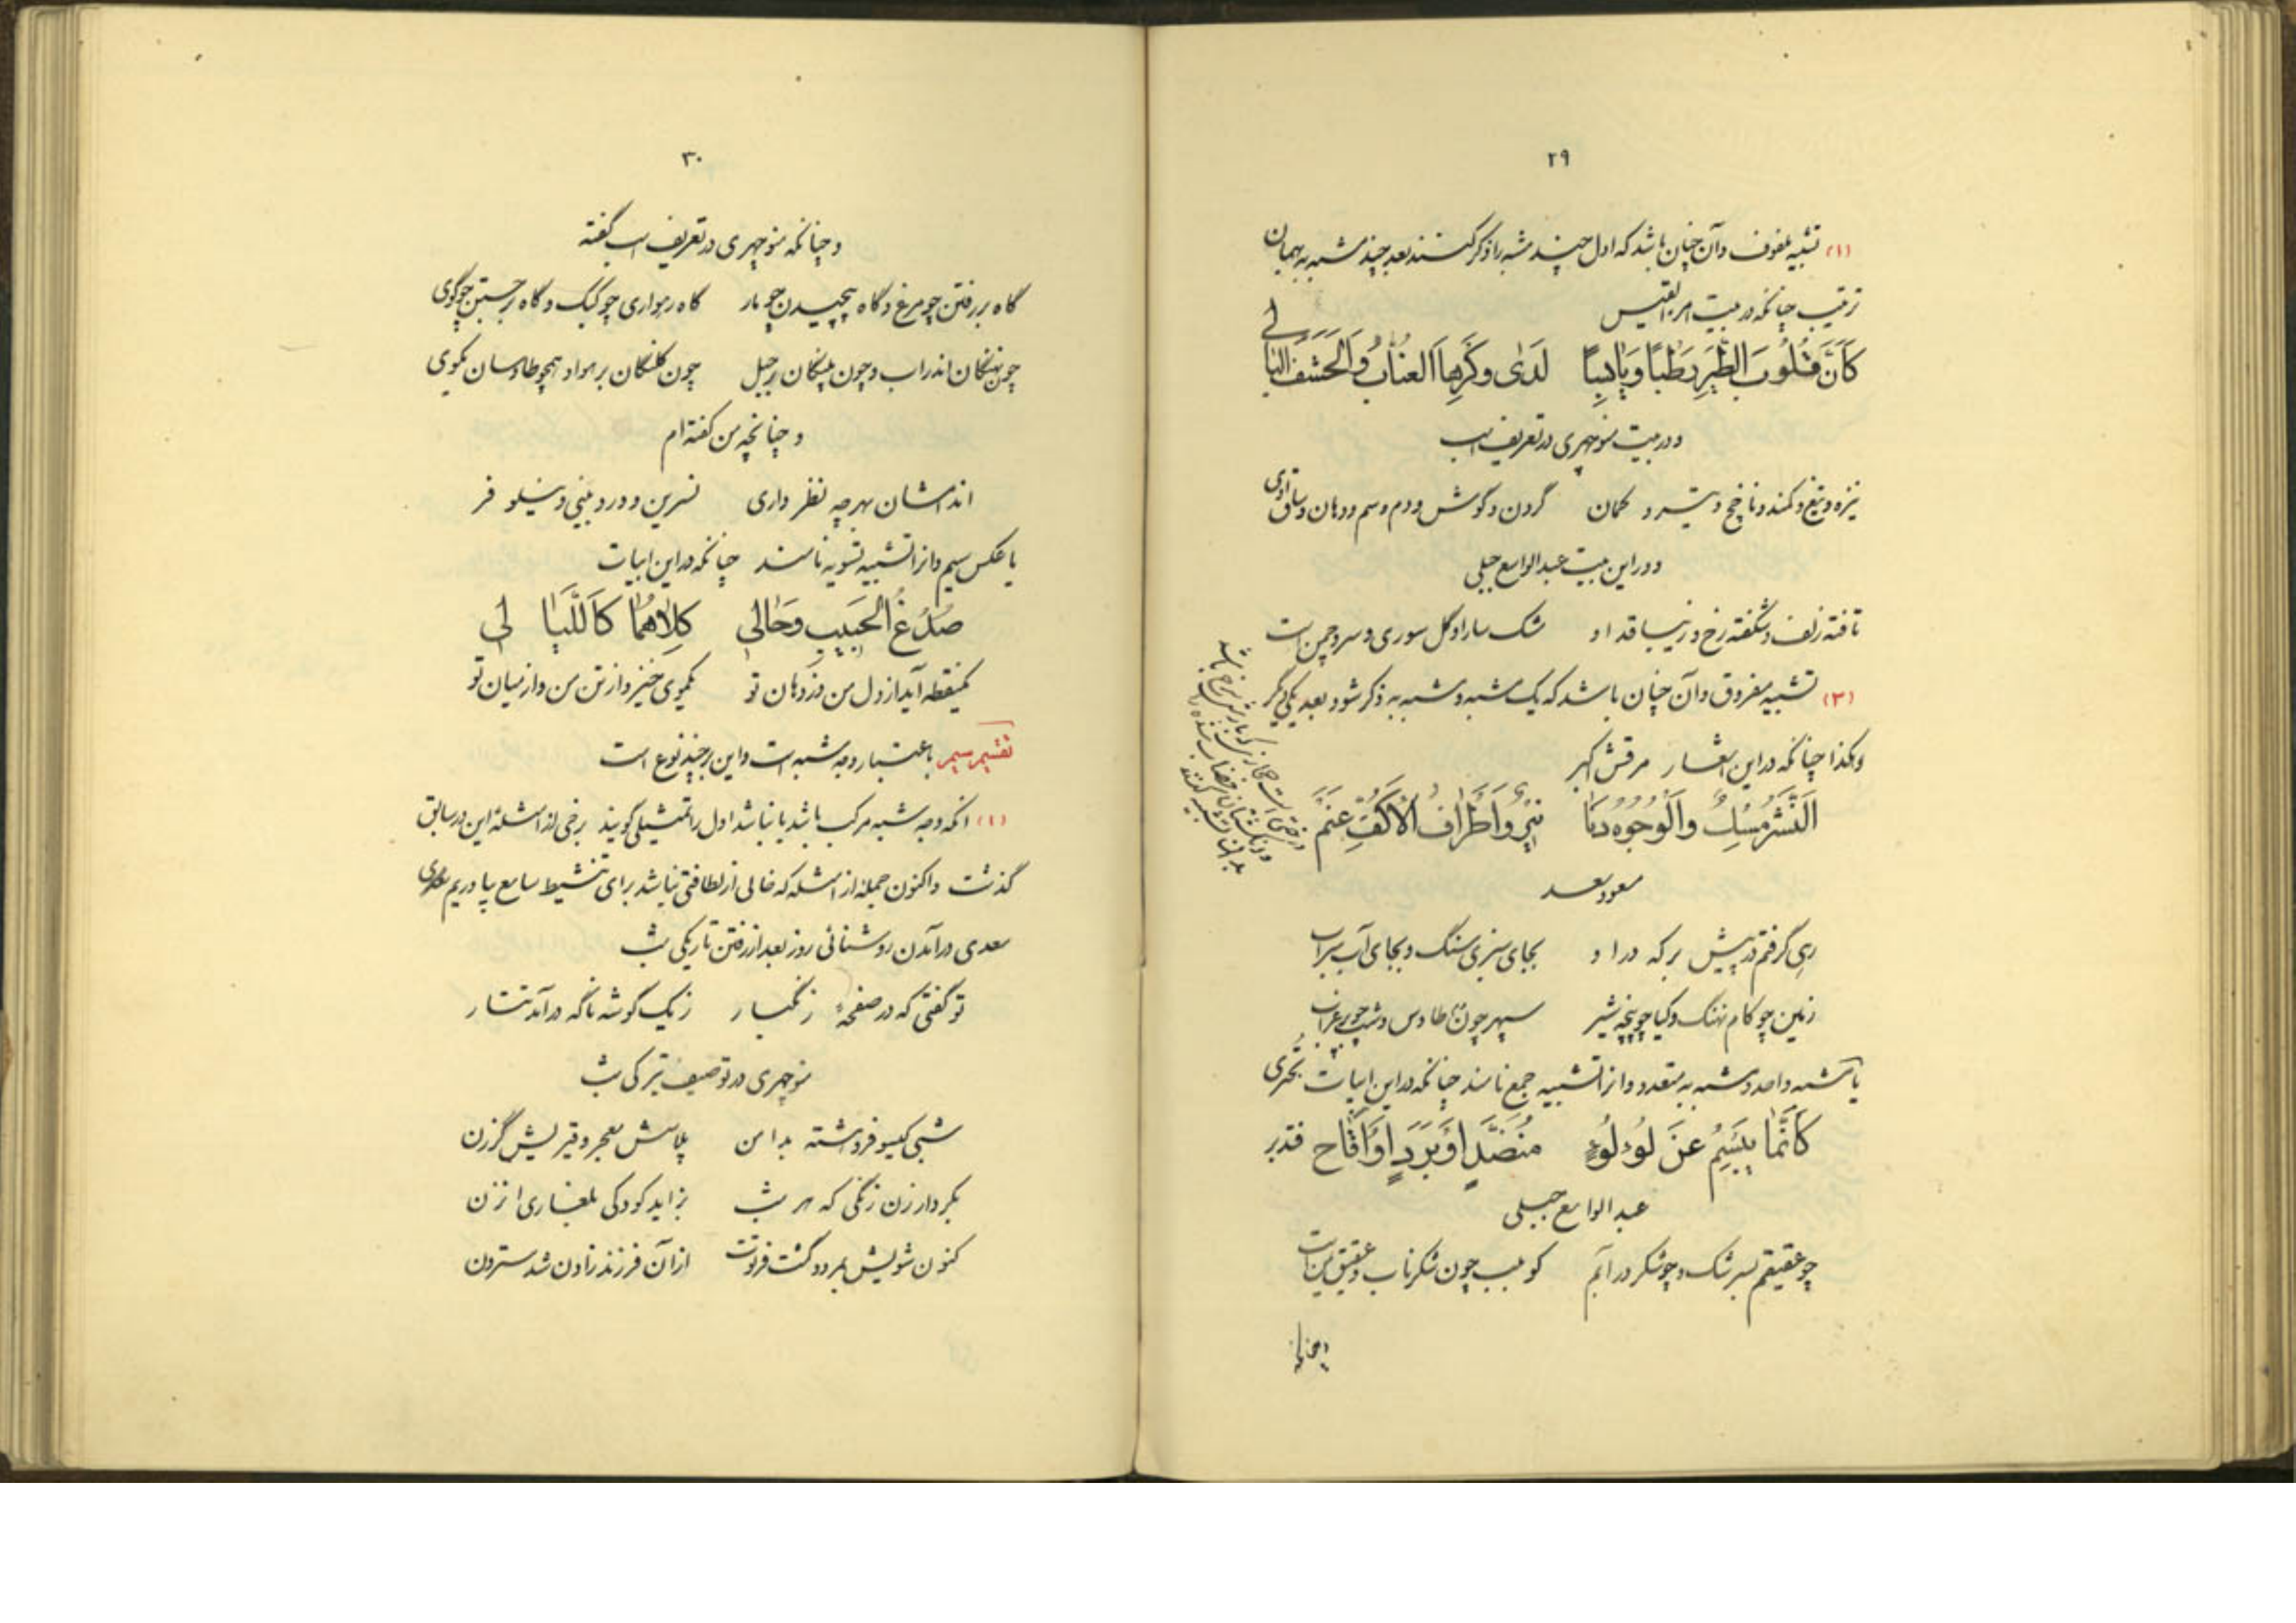 ۲۹
(۱) تشبیه ملفوف و آن چنان باشد که اول چند مشبه را ذکر کنند بعد چند مشبه به بهمان
ترتیب چنانکه در بیت امرء القیس
كَاَنَّ قُلُوبَ الطَّيرِ رَطْبًا وَيابِسًا لَدىٰ وَكْرِهاَ العُنّابُ وَالحَشَفُ البالي
و در بیت منوچهری در تعریف اسب
نیزه و تیغ و کمند و ناخج و تیر و کمان گردن و گوش و دم و سم و دهان و ساق اوی
و در این بیت عبدالواسع جبلی
تافته زلف و شگفته رخ و زیبا قد او مشک سارا و گل سوری و سرو چمن است
(۲) تشبیه مفروق و آن چنان باشد که یک مشبه و مشبه به ذکر شود بعد یکی دیگر
وهکذا چنانکه در این اشعار مرقش اکبر
اَلنَّشْرُ مِسْكٌ وَالْوُجُوهُ دَنا نيرٌ وَاَطْرافُ الْاَكُفِّ عَنَمٌ
مسعود سعد
رهی گرفتم در پیش بر که در او بجای سبزی سنگ و بجای آب سراب
زمین چو کام نهنگ و گیا چو پنجه شیر سپهر چون طاوس و شب چو پر غراب
یا مشبه واحد و مشبه به متعدد و انرا تشبیه جمع نامند چنانکه در این ابیات بحتری
كَاَنَّما يَبْسِمُ عَنْ لُؤلُؤٍ مُنَضَّدٍ اَوْ بَرَدٍ اَوْ اَقاح
عبدالواسع جبلی
چو عقیقم سرشک و چو شکر در آبم کو بلب چون شکر ناب و عقیق یمن است
و چنانکه
۳۰
و چنانکه منوچهری در تعریف اسب گفته
گاه بررفتن چو مرغ و گاه پیچیدن چو مار گاه رهواری چو کبک و گاه برجستن چو گوی
چون نهنگان اندر اب و چون پلنگان بر جبل چون کلنگان بر هوا و همچو طاوسان بکوی
و چنانچه من گفته ام
اندامشان بهر چه نظر داری نسرین و ورد بینی و نیلوفر
یا عکس سیم و انرا تشبیه تسویه نامند چنانکه در این ابیات
صُدْغُ الْحَبيبِ وَحالي كِلاهُما كَاللَّيالي
یکنقطه آید از دل من وز دهان تو یکموی خیزد از تن من وز میان تو
تقسیم سیم باعتبار وجه شبه است و این بر چند نوع است
(۱) انکه وجه شبه مرکب باشد یا نباشد اول را تمثیلی گویند برخی از امثله این در سابق
گذشت و اکنون جمله از امثله که خالی از لطافتی نباشد برای تنشیط سامع بیاوریم
سعدی در آمدن روشنائی روز بعد از رفتن تاریکی شب
تو گفتی که در صفحهٔ زنگبار ز یک گوشه ناگه در آمد تتار
منوچهری در توصیف تیرگی شب
شبی گیسو فروهشته بدامن پلاسش معجر و قیرینش گرزن
بکردار زن زنگی که هر شب بزاید کودکی بلغاری ان زن
کنون شویش بمرد و گشت فرتوت از آن فرزند زادن شد سترون